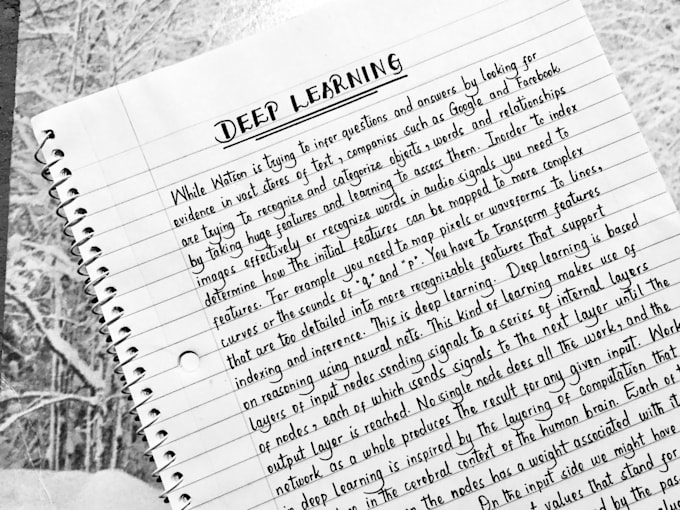 DEEP LEARNING
While Watson is trying to infer questions and answers by looking for
evidence in vast stores of text, companies such as Google and Facebook
are trying to recognize and categorize objects, words and relationships
by taking huge features and learning to assess them. Insorder to index
images effectively or recognize words in audio signals you need to
determine how the initial features can be mapped to more complex
features. For example you need to map pixels or waveforms to lines,
curves or the sounds of "q" and "p". You have to transform features
that are too detailed into more recognizable features that support
indexing and inference. This is deep learning. Deep learning is based
on reasoning using neural nets. This kind of learning makes use of
layers of input nodes sending signals to a series of internal layers
of nodes, each of which sends signals to the next layer until the
output layer is reached. No single node does all the work, and the
network as a whole produces the result for any given input. Work
in deep learning is inspired by the layering of computation that
in the cerebral context of the human brain. Each of
the nodes has a weight associated with it
On the input side we might have
values that stand for
by the